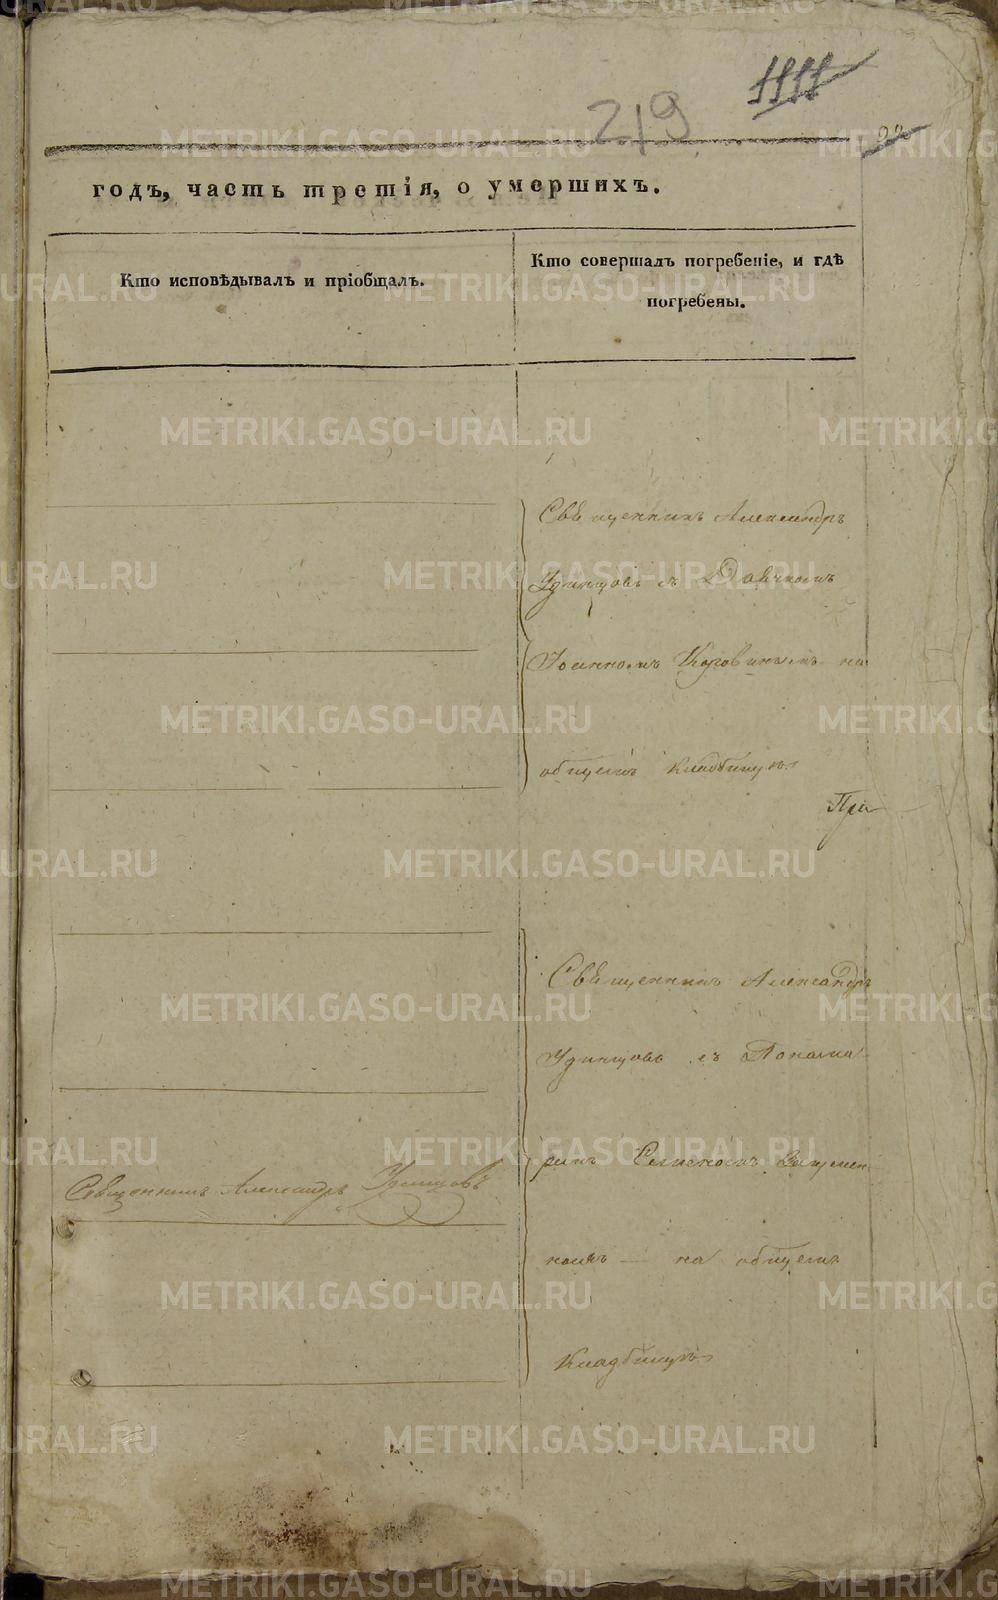 1111
219
22
годъ, часть третія, о умершихъ.
Кто исповѣдывалъ и пріобщалъ.
Кто совершалъ погребеніе, и гдѣ
погребены.
Священникъ Александръ
Удинцовъ съ Дьячкомъ
Іоанномъ Коровинымъ на
общемъ кладбищѣ
При
Священникъ Александръ
Удинцовъ съ Понама
ремъ
Священникъ Александръ Удинцовъ
номъ — на общемъ
Кладбищѣ
METRIKI.GASO-URAL.RU